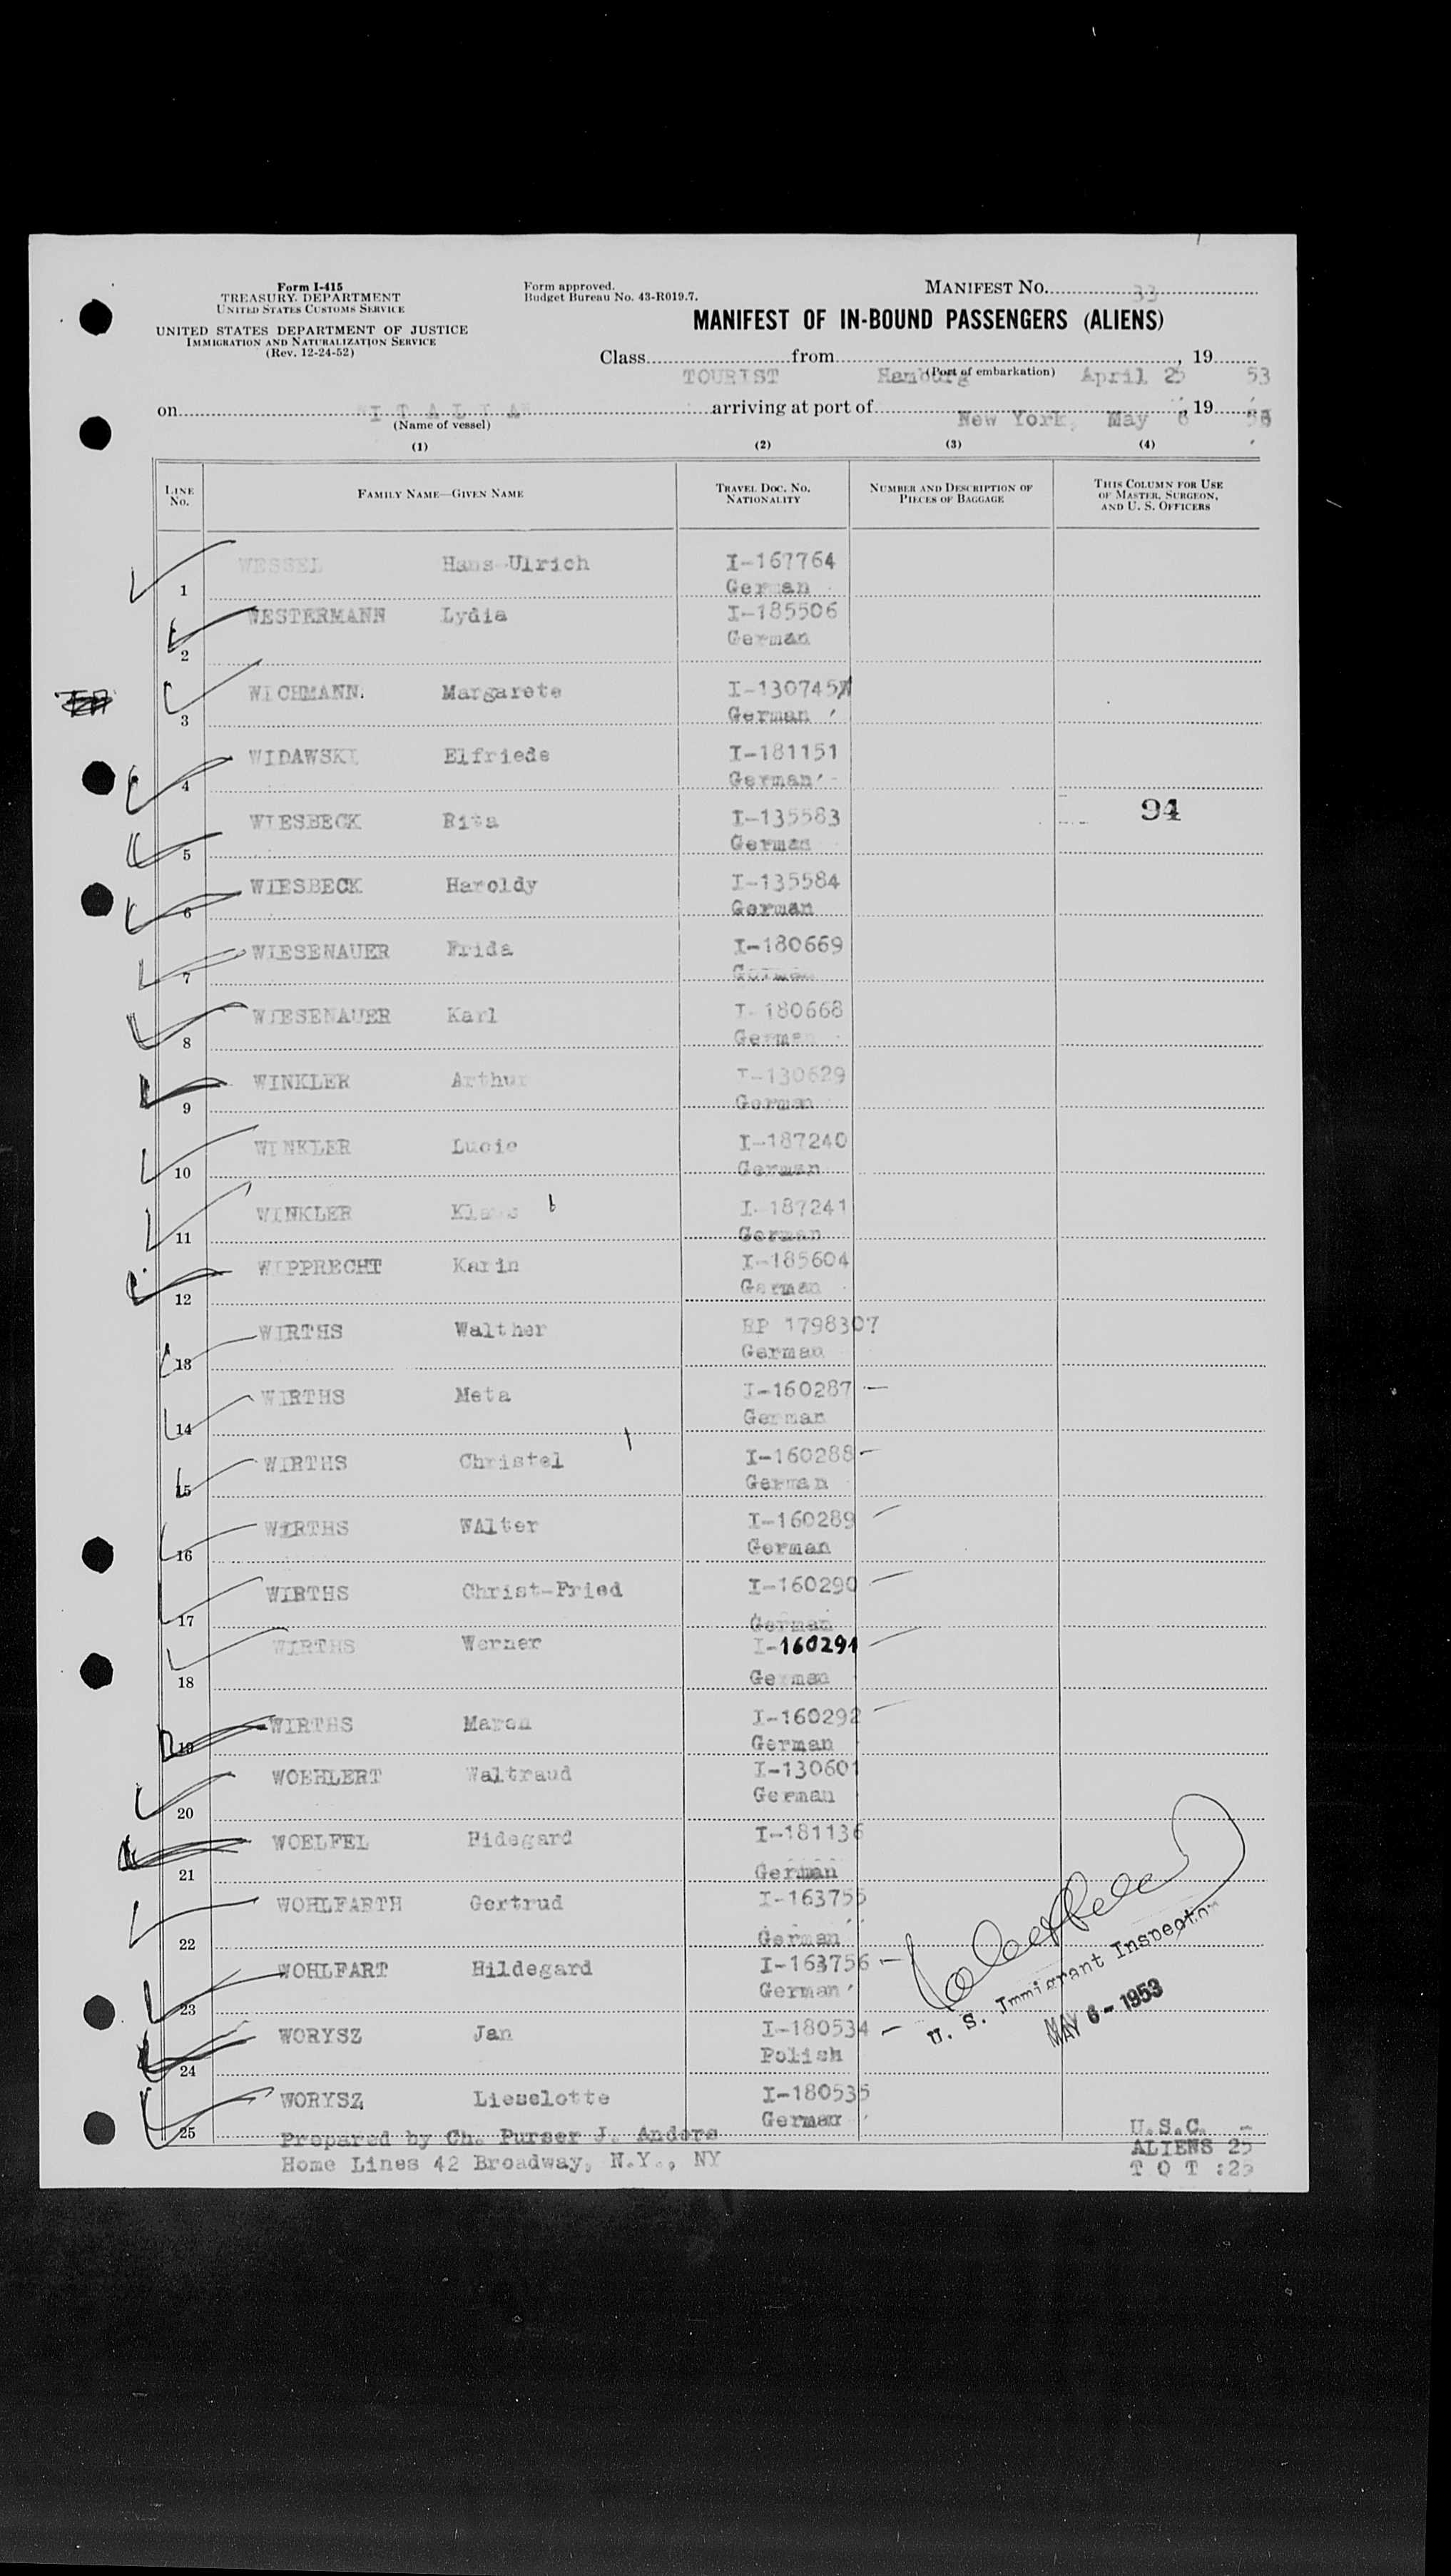 Form I-415
TREASURY DEPARTMENT
UNITED STATES CUSTOMS SERVICE
UNITED STATES DEPARTMENT OF JUSTICE
IMMIGRATION AND NATURALIZATION SERVICE
(Rev. 12-24-52)
Form approved.
Budget Bureau No. 43-R019.7.
MANIFEST NO. 33
MANIFEST OF IN-BOUND PASSENGERS (ALIENS)
Class TOURIST from Hamburg April 25, 19 53
(Port of embarkation)
on "I T A L I A" arriving at port of New York, May 6, 19 53
(Name of vessel)
(1) (2) (3) (4)
LINE NO. FAMILY NAME—GIVEN NAME TRAVEL DOC. NO. NATIONALITY NUMBER AND DESCRIPTION OF PIECES OF BAGGAGE THIS COLUMN FOR USE OF MASTER, SURGEON, AND U. S. OFFICERS
1 WESSEL Hans-Ulrich I-167764
German
2 WESTERMANN Lydia I-185506
German
3 WICHMANN. Margarete I-130745
German
4 WIDAWSKI Elfriede I-181151
German
5 WIESBECK Rita I-135583 94
German
6 WIESBECK Haroldy I-135584
German
7 WIESENAUER Frida I-180669
German
8 WIESENAUER Karl I-180668
German
9 WINKLER Arthur I-130629
German
10 WINKLER Lucie I-187240
German
11 WINKLER Klaus I-187241
German
12 WIPPRECHT Karin I-185604
German
13 WIRTHS Walther RP 1798307
German
14 WIRTHS Meta I-160287
German
15 WIRTHS Christel I-160288
German
16 WIRTHS WAlter I-160289
German
17 WIRTHS Christ-Fried I-160290
German
18 WIRTHS Werner I-160291
German
19 WIRTHS Maren I-160292
German
20 WOEHLERT Waltraud I-130601
German
21 WOELFEL Hidegard I-181136
German
22 WOHLFARTH Gertrud I-163755
German
23 WOHLFART Hildegard I-163756
German
24 WORYSZ Jan I-180534
Polish
25 WORYSZ Lieselotte I-180535
German
U. S. Immigrant Inspector
MAY 6 - 1953
Prepared by Ch. Purser J. Anders
Home Lines 42 Broadway, N.Y., NY
U.S.C. -
ALIENS 25
T O T :25